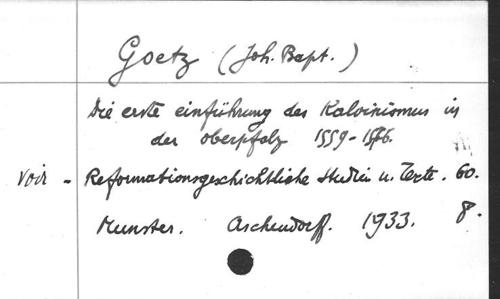 Goetz (Joh. Bapt.)
Die erste einführung des Kalvinismus in
der oberpfalz 1559-1576.
Voir - Reformationsgeschichtliche Studien u. Texte. 60.
Munster. Aschendorff. 1933. 8.